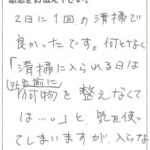 2日に1回の清掃で
良かったです。何となく
「清掃に入られる日は
荷物を整えなくて
は…。」と、気を使っ
てしまいますが、入らな